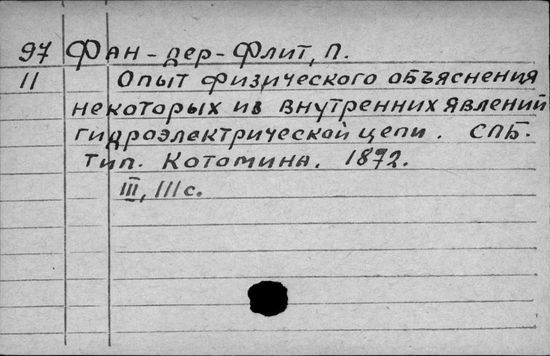 97 Фан-дер-Флит, П.
II Опыт физического объяснения
некоторых из внутренних явлений
гидроэлектрической цепи. СПБ.
тип. Котомина. 1872.
III, 111 с.